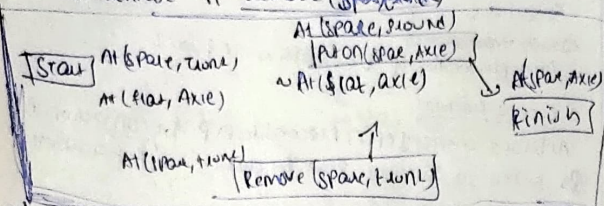 At (spare, ground)
Start At (spare, trunk) Put on (spae, Axle) At (spare, Axle)
At (flat, Axle) ~ At (flat, axle) Finish
At (spare, trunk)
Remove (spare, trunk)